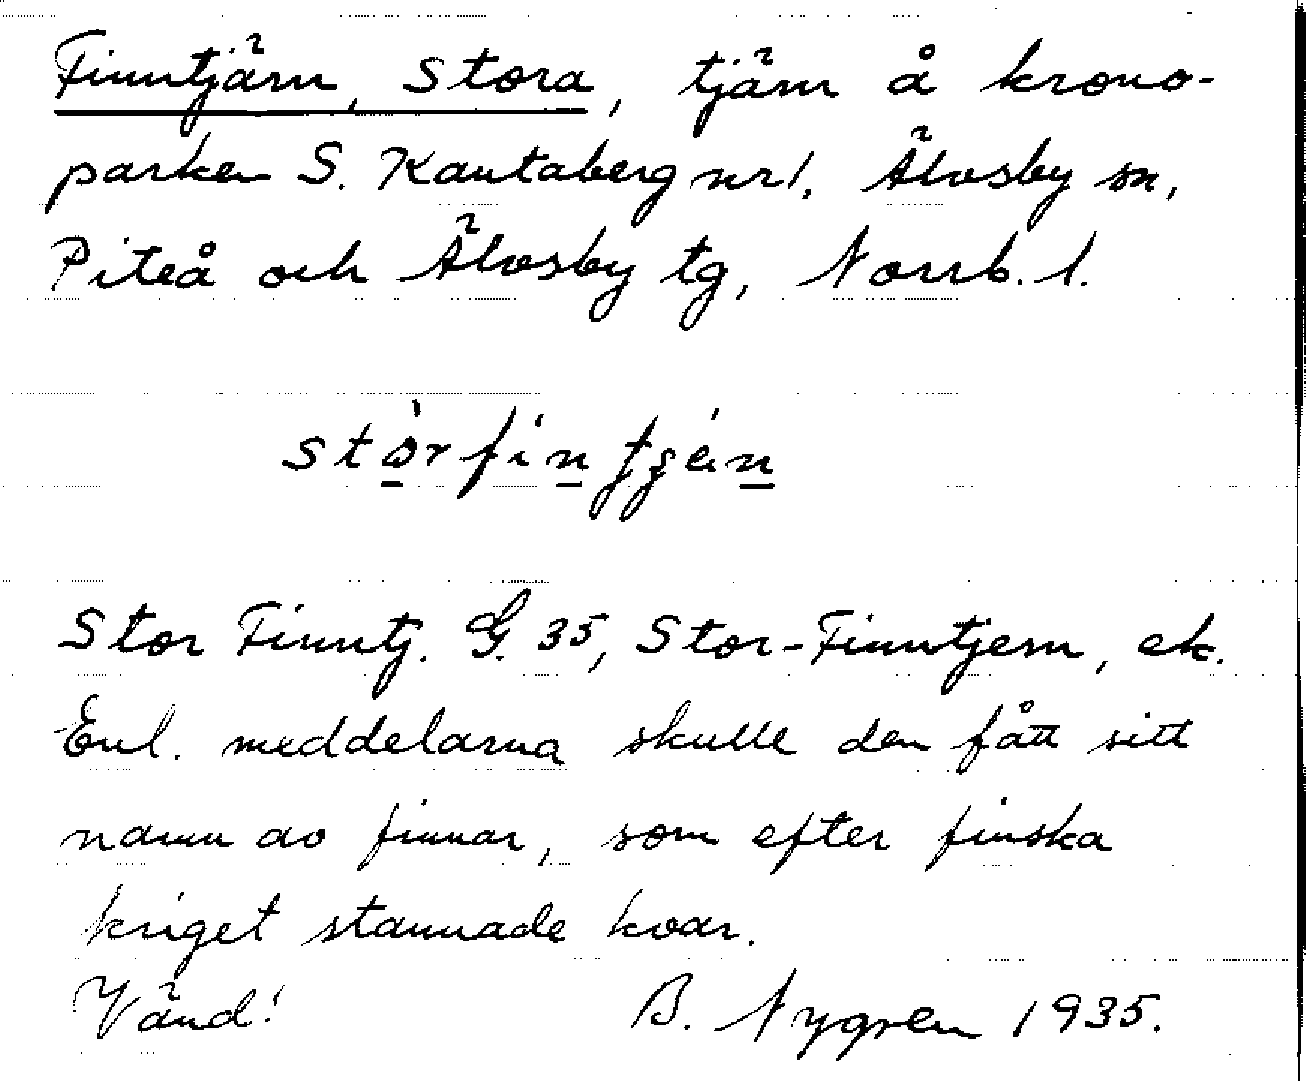 Finntjärn, Stora, tjärn å krono-
parken S. Kantaberg nr 1. Älvsby sn,
Piteå och Älvsby tg, Norrb. l.
Stor Finntj. G. 35, Stor-Finntjern, ek.
Enl. meddelarna skulle den fått sitt
namn av finnar, som efter finska
kriget stannade kvar.
Vänd! B. Nygren 1935.